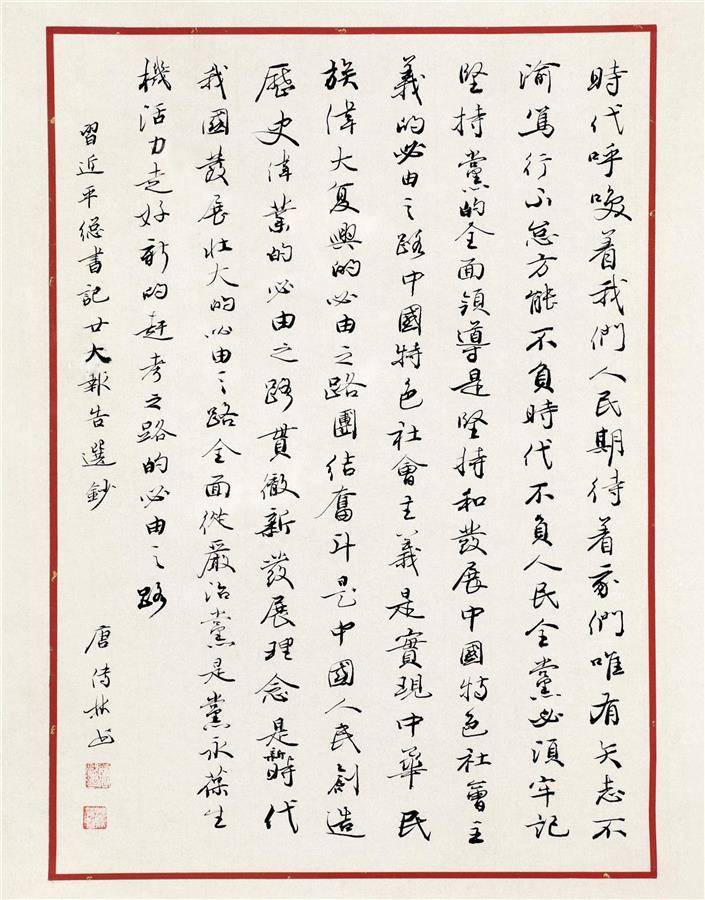 時代呼喚着我們人民期待着我們唯有矢志不
渝篤行不怠方能不負時代不負人民全黨必須牢記
堅持黨的全面領導是堅持和發展中國特色社會主
義的必由之路中國特色社會主義是實現中華民
族偉大復興的必由之路團結奮斗是中國人民創造
歷史偉業的必由之路貫徹新發展理念是新時代
我國發展壯大的必由之路全面從嚴治黨是黨永葆生
機活力走好新的赶考之路的必由之路
習近平總書記廿大報告選鈔
唐傳林書